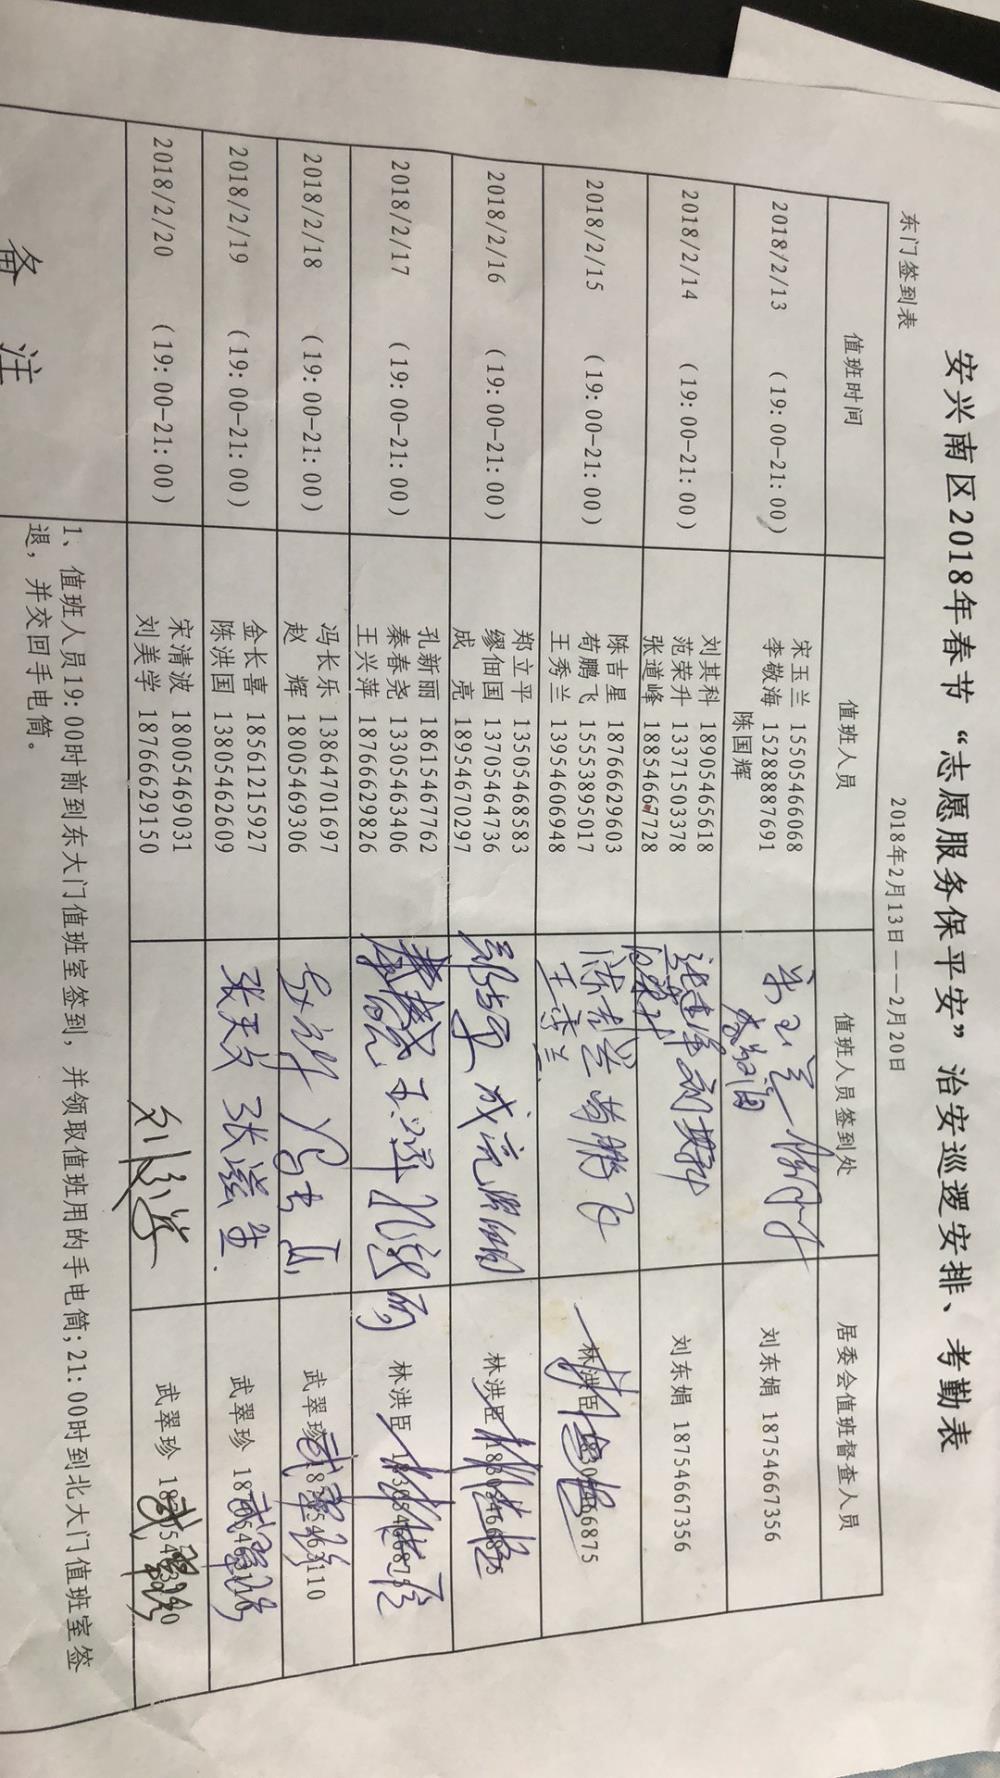 安兴南区2018年春节“志愿服务保平安”治安巡逻安排、考勤表
2018年2月13日——2月20日
东门签到表
值班时间 值班人员 值班人员签到处 居委会值班督查人员
2018/2/13 (19:00-21:00)
宋玉兰 15505466068
李敬海 15288887691
陈国辉
刘东娟 18754667356
2018/2/14 (19:00-21:00)
刘其科 18905465618
范荣升 13371503378
张道峰 18854667728
张道峰 刘其科
刘东娟 18754667356
2018/2/15 (19:00-21:00)
陈吉星 18766629603
苟鹏飞 15553895017
王秀兰 13954606948
陈吉星 苟鹏飞
王秀兰
林洪臣
2018/2/16 (19:00-21:00)
郑立平 13505468583
缪佃国 13705464736
成 亮 18954670297
郑立平 成亮
林洪臣
2018/2/17 (19:00-21:00)
孔新丽 18615467762
秦春尧 13305463406
王兴萍 18766629826
林洪臣
2018/2/18 (19:00-21:00)
冯长乐 13864701697
赵 辉 18005469306
武翠珍
2018/2/19 (19:00-21:00)
金长喜 18561215927
陈洪国 13805462609
武翠珍
2018/2/20 (19:00-21:00)
宋清波 18005469031
刘美学 18766629150
刘美学
武翠珍
备 注
1、值班人员19:00时前到东大门值班室签到,并领取值班用的手电筒;21:00时到北大门值班室签
退,并交回手电筒。